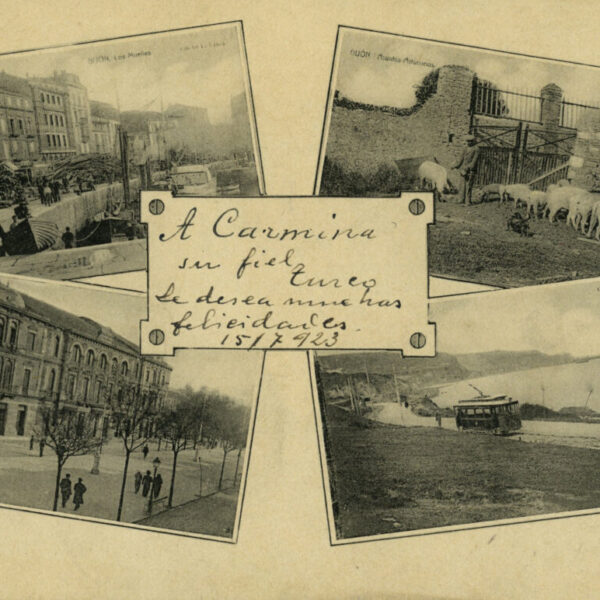 GIJON. Los Muelles
GIJON
A Carmina
su fiel
turco
Le desea muchas
felicidades.
15/7 923